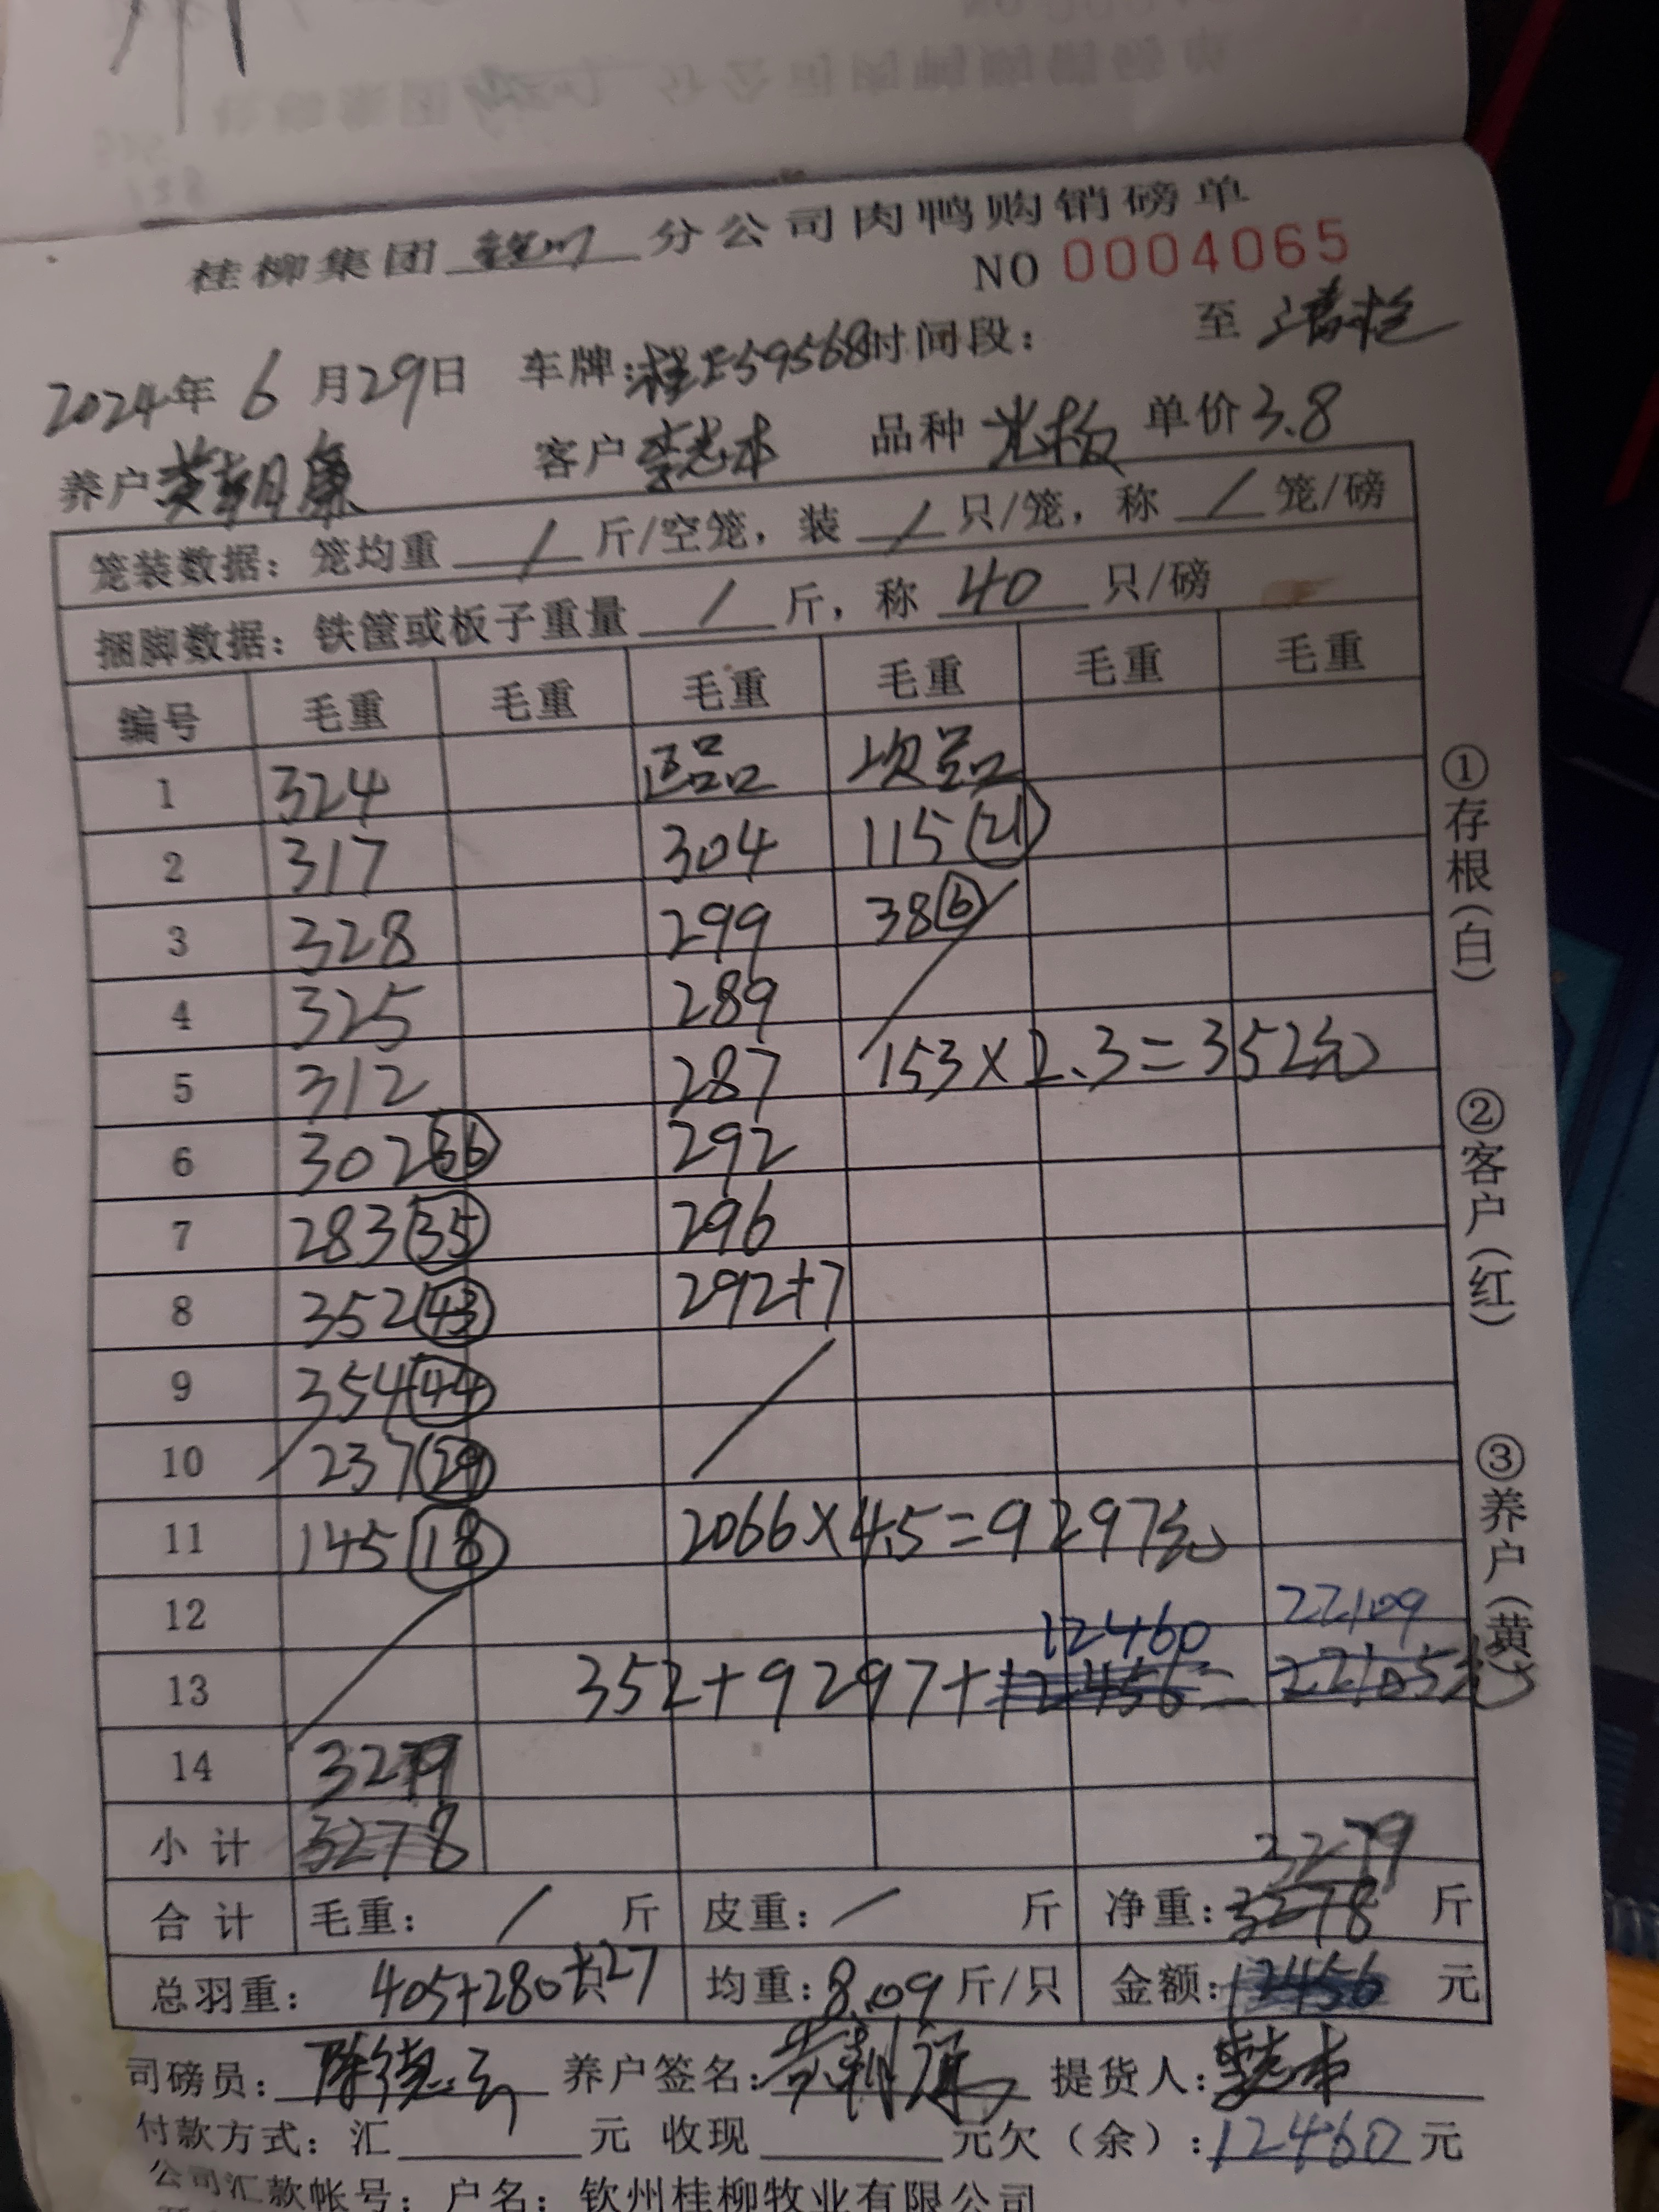 桂柳集团 分公司肉鸭购销磅单
NO 0004065
2024年 6 月29日 车牌: E59568时间段: 至
养户黄朝康 客户李志本 品种 单价3.8
笼装数据: 笼均重 / 斤/空笼, 装 / 只/笼, 称 / 笼/磅
捆脚数据: 铁筐或板子重量 / 斤, 称 40 只/磅
编号 毛重 毛重 毛重 毛重 毛重 毛重
1 324 正品 次品
2 317 304 115(21)
3 328 299 38(6)
4 325 289
5 312 287 153×2.3=352元
6 302(36) 292
7 283(35) 296
8 352(43) 292+7
9 354(44)
10 237(29)
11 145(18) 2066×4.5=9297元
12 12460 22109
13 352+9297+12456=22105元
14 3279
小计 3278 3279
合计 毛重: / 斤 皮重: / 斤 净重:3278 斤
总羽重: 405+280+27 只 均重:8.09斤/只 金额:12456 元
司磅员: 养户签名: 提货人:李志本
付款方式: 汇 元 收现 元欠(余):12460元
公司汇款帐号: 户名: 钦州桂柳牧业有限公司
①存根(白) ②客户(红) ③养户(黄)